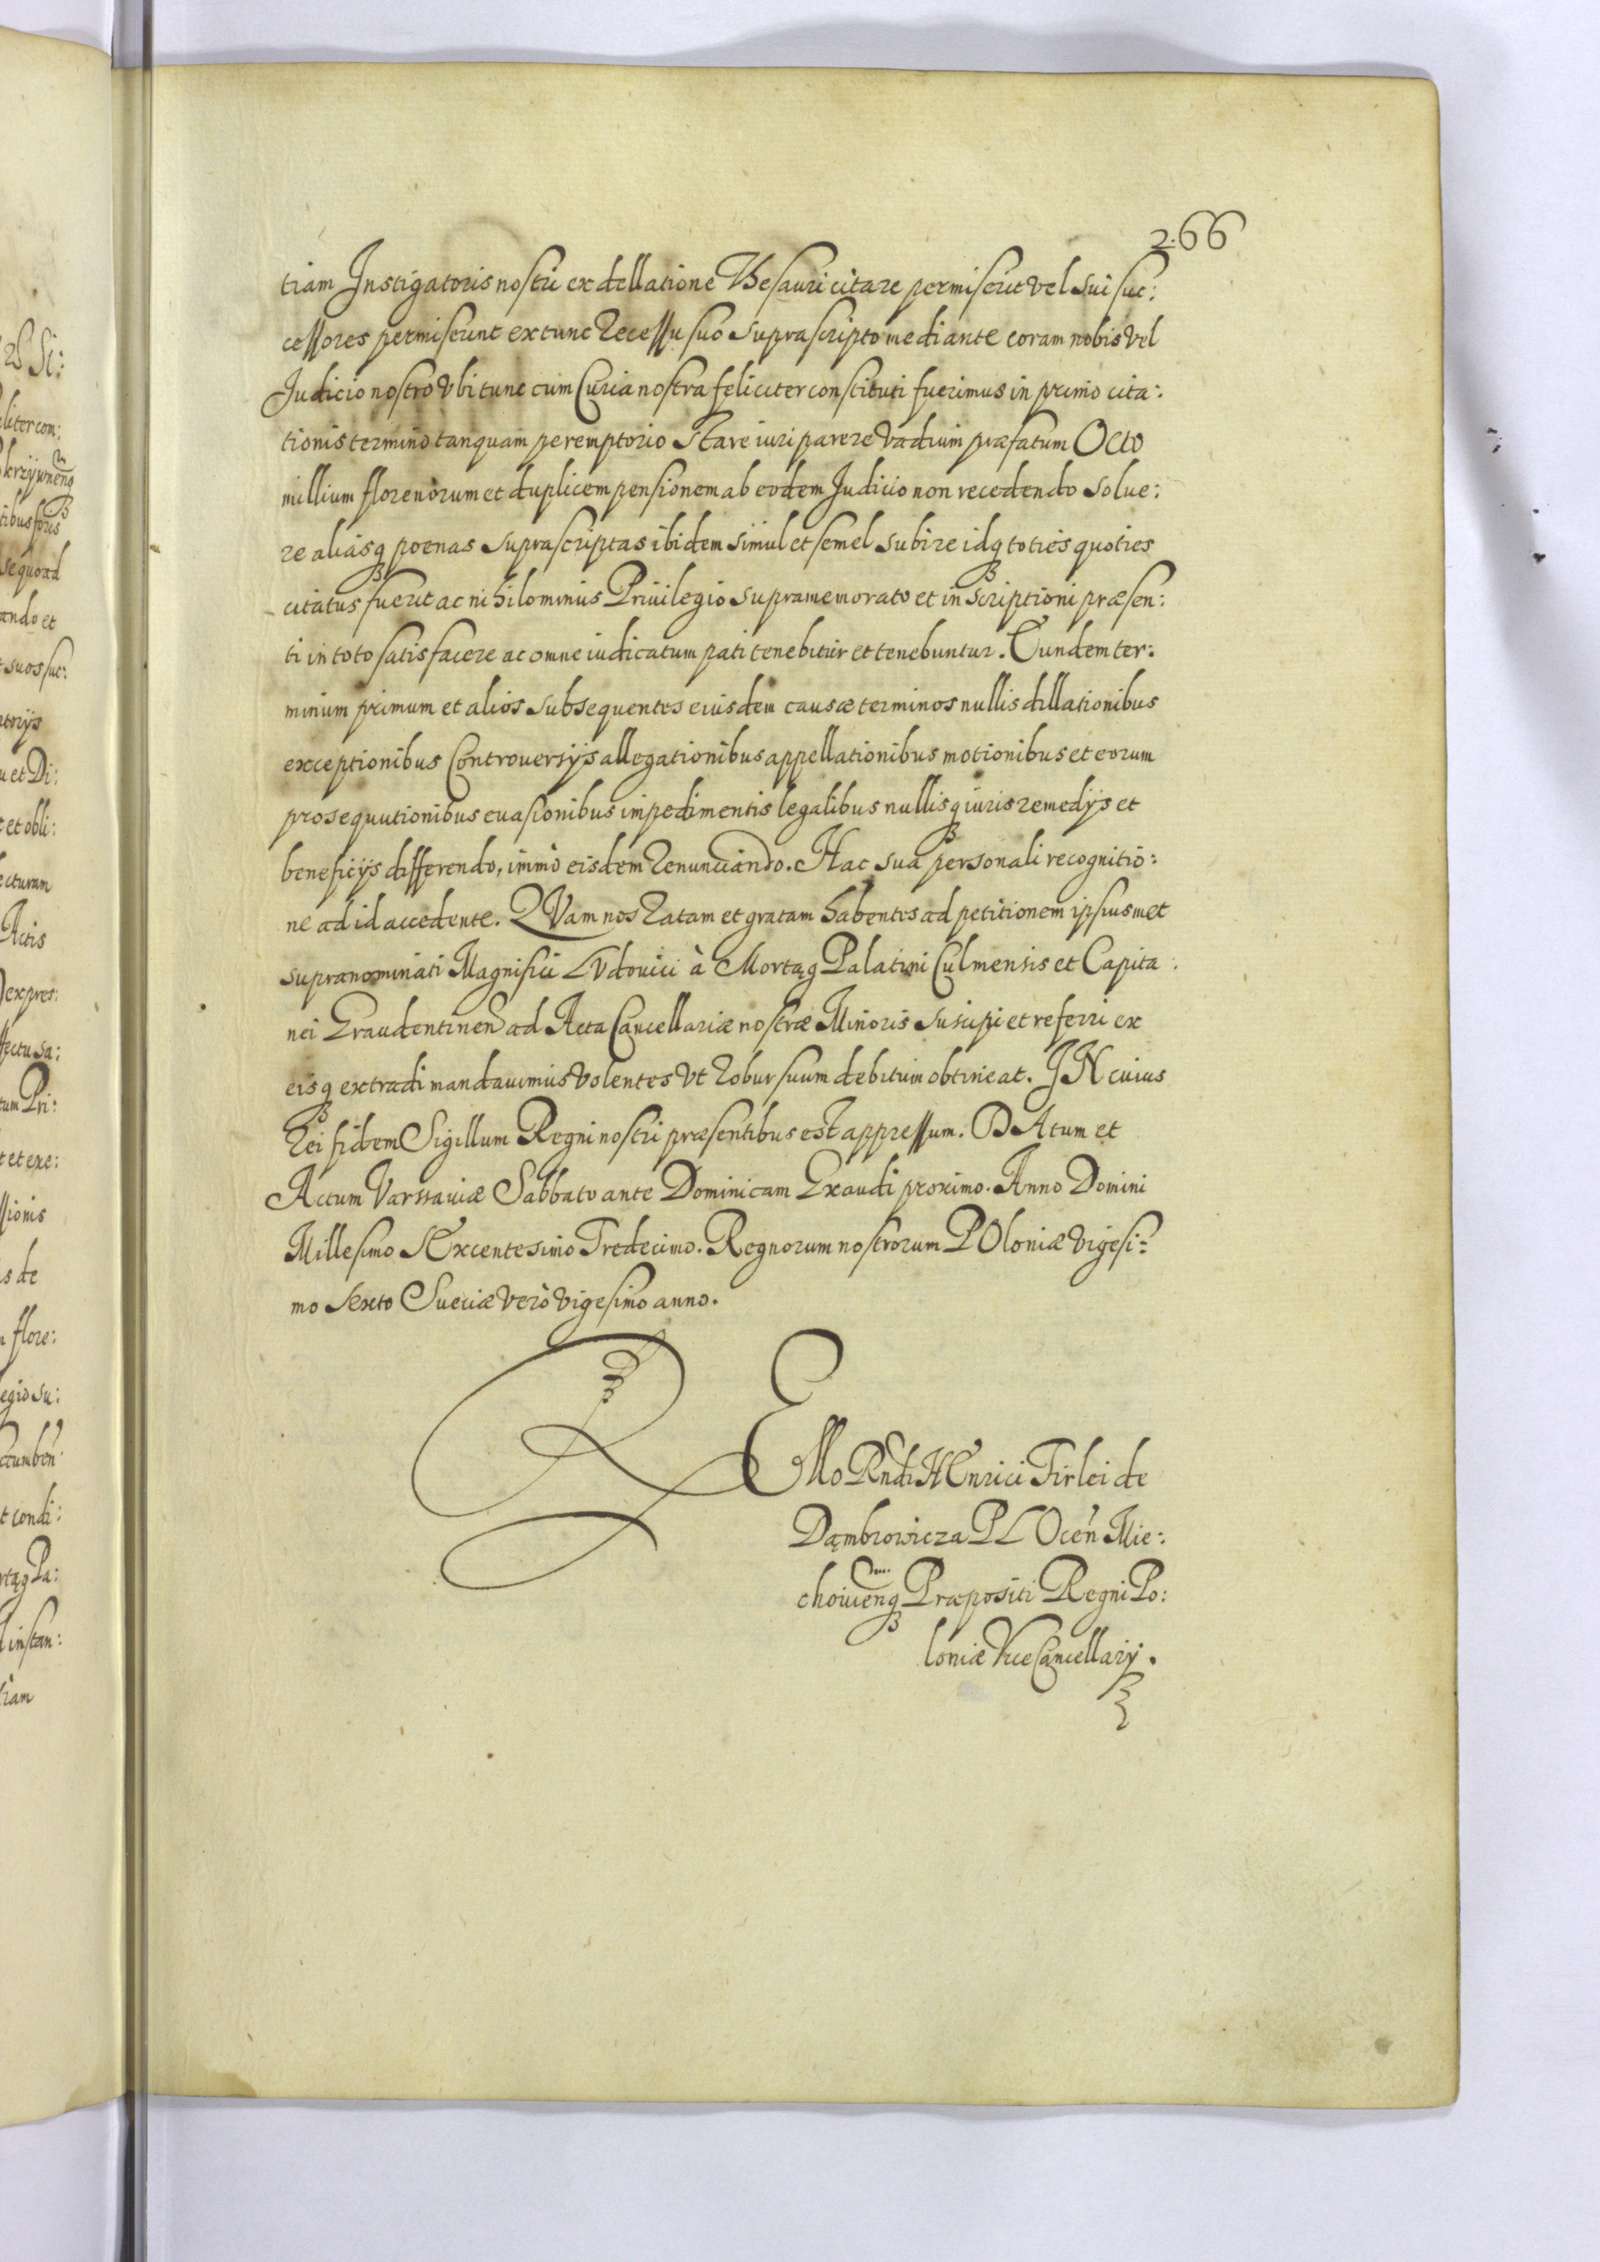 266
tiam Instigatoris nostri ex dellatione Thesauri citare permiserit vel sui suc:
cessores permiserint extunc recessu suo suprascripto mediante coram nobis vel
Judicio nostro Vbi tunc cum Curia nostra feliciter constituti fuerimus in primo cita:
tionis termino tanquam peremptorio Stare iuri parere vadium præfatum Octo
millium florenorum et duplicem pensionem ab eodem Judicio non recedendo solue:
re aliasq poenas suprascriptas ibidem simul et semel subire idq toties quoties
citatus fuerit ac nihilominus Priuilegio supramemorato et inscriptioni præsen:
ti in toto satisfacere ac omne iudicatum pati tenebitur et tenebuntur. Eundem ter:
minum primum et alios subsequentes eiusdem causæ terminos nullis dillationibus
exceptionibus Controuersijs allegationibus appellationibus motionibus et eorum
prosequutionibus euasionibus impedimentis legalibus nullisq iuris remedijs et
beneficijs differendo, immò eisdem renunciando. Hac sua personali recognitio:
ne ad id accedente. QVam nos ratam et gratam habentes ad petitionem ipsiusmet
supranominati Magnifici LVdouici à Mortąg Palatini Culmensis et Capita:
nei Graudentinen ad Acta Cancellariæ nostræ Minoris suscipi et referri ex
eisq extradi mandauimus volentes Vt robur suum debitum obtineat. IN cuius
rei fidem Sigillum Regni nostri præsentibus est appressum. DAtum et
Actum Varssauiæ Sabbato ante Dominicam Exaudi proximo. Anno Domini
Millesimo SExcentesimo Tredecimo. Regnorum nostrorum POloniæ Vigesi:
mo Sexto Sueciæ verò vigesimo anno.
Rllo Rndi HEnrici Firlei de
Dąmbrowicza PLOcen Mie:
chouienq Præpositi Regni Po:
loniæ ViceCancellarij.